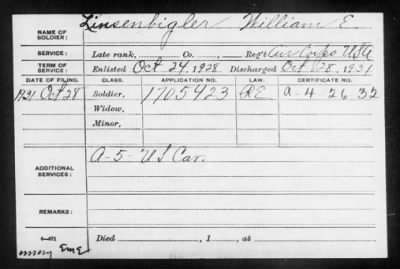 NAME OF SOLDIER: Linsenbigler William E.
SERVICE: Late rank, Co. , Reg't Air Corps USA
TERM OF SERVICE: Enlisted Oct 24, 1928 Discharged Oct 28, 1931
DATE OF FILING. CLASS. APPLICATION NO. LAW. CERTIFICATE NO.
1931 Oct 28 Soldier, 1705423 RE a-4 26 32
Widow,
Minor,
ADDITIONAL SERVICES: A-5- US Cav.
REMARKS:
Died , 1 , at